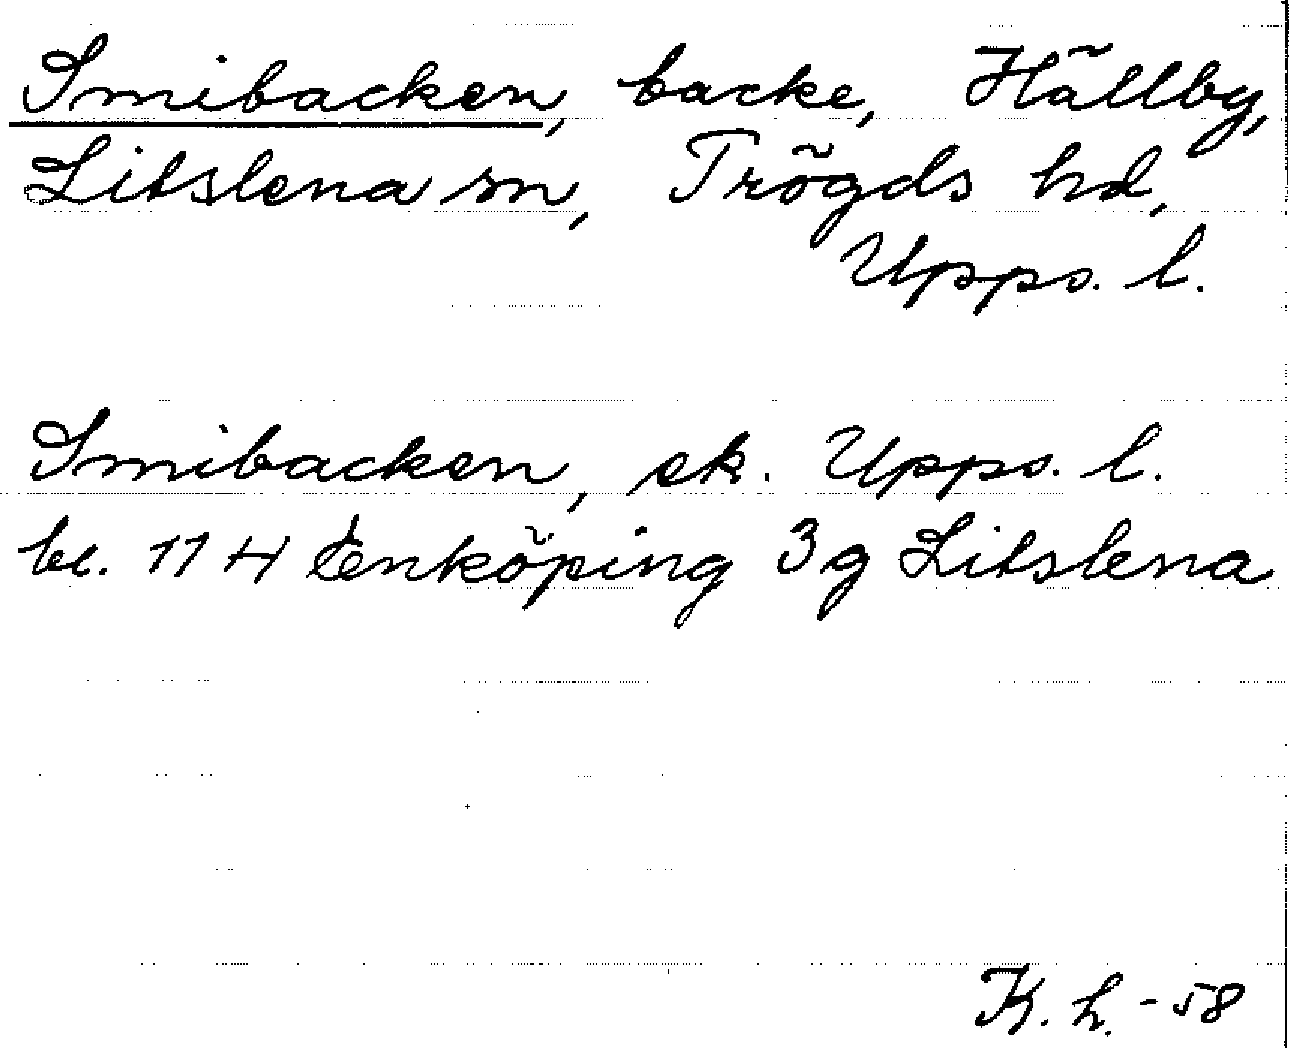 Smibacken, backe, Hällby,
Litslena sn, Trögds hd,
Upps. l.
Smibacken, ek. Upps. l.
bl. 11 H Enköping 3g Litslena
K. h. -58